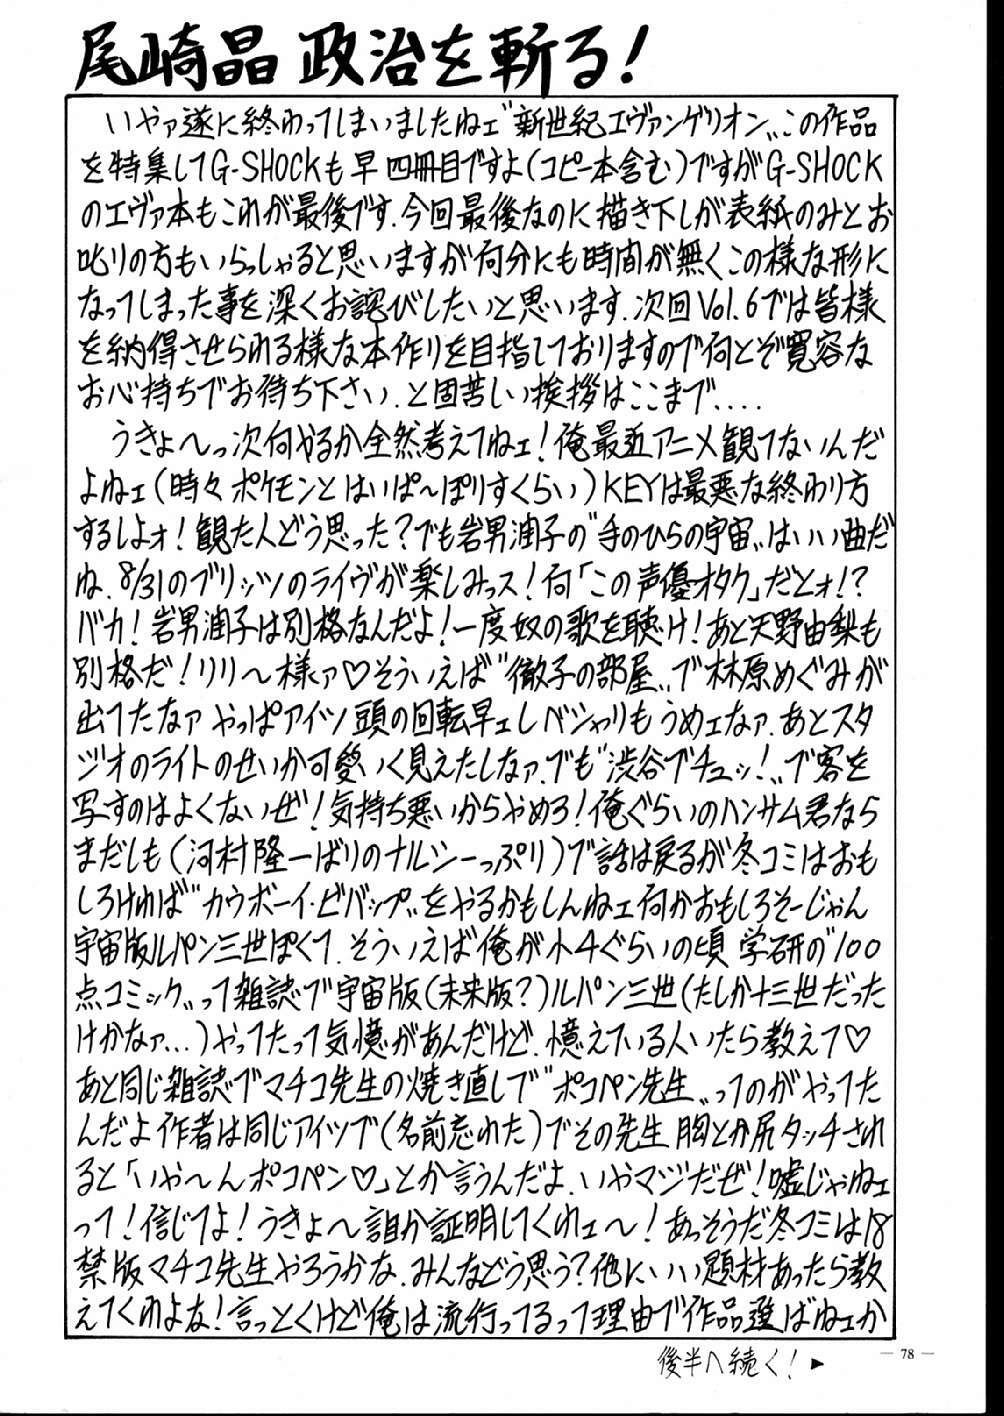 尾崎晶 政治を斬る!
いやァ遂に終わってしまいましたねェ〝新世紀エヴァンゲリオン〟この作品
を特集してG-SHOCKも早四冊目ですよ(コピー本含む)ですがG-SHOCK
のエヴァ本もこれが最後です.今回最後なのに描き下しが表紙のみとお
叱りの方もいらっしゃると思いますが何分にも時間が無くこの様な形に
なってしまった事を深くお詫びしたいと思います.次回Vol.6では皆様
を納得させられる様な本作りを目指しておりますので何とぞ寛容な
お心持ちでお待ち下さい.と固苦しい挨拶はここまで....
うきょ〜っ次何やるか全然考えてねェ!俺最近アニメ観てないんだ
よねェ(時々ポケモンとはいぱ〜ぽりすくらい)KEYは最悪な終わり方
するしよォ!観た人どう思った?でも岩男潤子の〝手のひらの宇宙〟はいい曲だ
ね.8/31のブリッツのライヴが楽しみっス!何「この声優オタク」だとォ!?
バカ!岩男潤子は別格なんだよ!一度奴の歌を聴け!あと天野由梨も
別格だ!リリ〜様ァ♡そういえば〝徹子の部屋〟で林原めぐみが
出てたなァ やっぱアイツ頭の回転早ェしベシャリもうめェなァ.あとスタ
ジオのライトのせいか可愛いく見えたしなァ.でも〝渋谷でチュッ!〟で客を
写すのはよくないぜ!気持ち悪いからやめろ!俺ぐらいのハンサム君なら
まだしも(河村隆一ばりのナルシーっぷり)で話は戻るが冬コミはおも
しろければ〝カウボーイ・ビバップ〟をやるかもしんねェ何かおもしろそーじゃん
宇宙版ルパン三世ぽくて.そういえば俺が小4ぐらいの頃 学研の〝100
点コミック〟って雑誌で宇宙版(未来版?)ルパン三世(たしか十三世だった
けかなァ...)やってたって気憶があんだけど.憶えている人いたら教えて♡
あと同じ雑誌でマチコ先生の焼き直しで〝ポコペン先生〟ってのがやってた
んだよ作者は同じアイツで(名前忘れた)でその先生 胸とか尻タッチされ
ると「いや〜んポコペン♡」とか言うんだよ.いやマジだぜ!嘘じゃねェ
って!信じてよ!うきょ〜誰か証明してくれェ〜!あっそうだ冬コミは18
禁版マチコ先生やろうかな.みんなどう思う?他にいい題材あったら教
えてくれよな!言っとくけど俺は流行ってるって理由で作品選ばねェか
後半へ続く!►
— 78 —